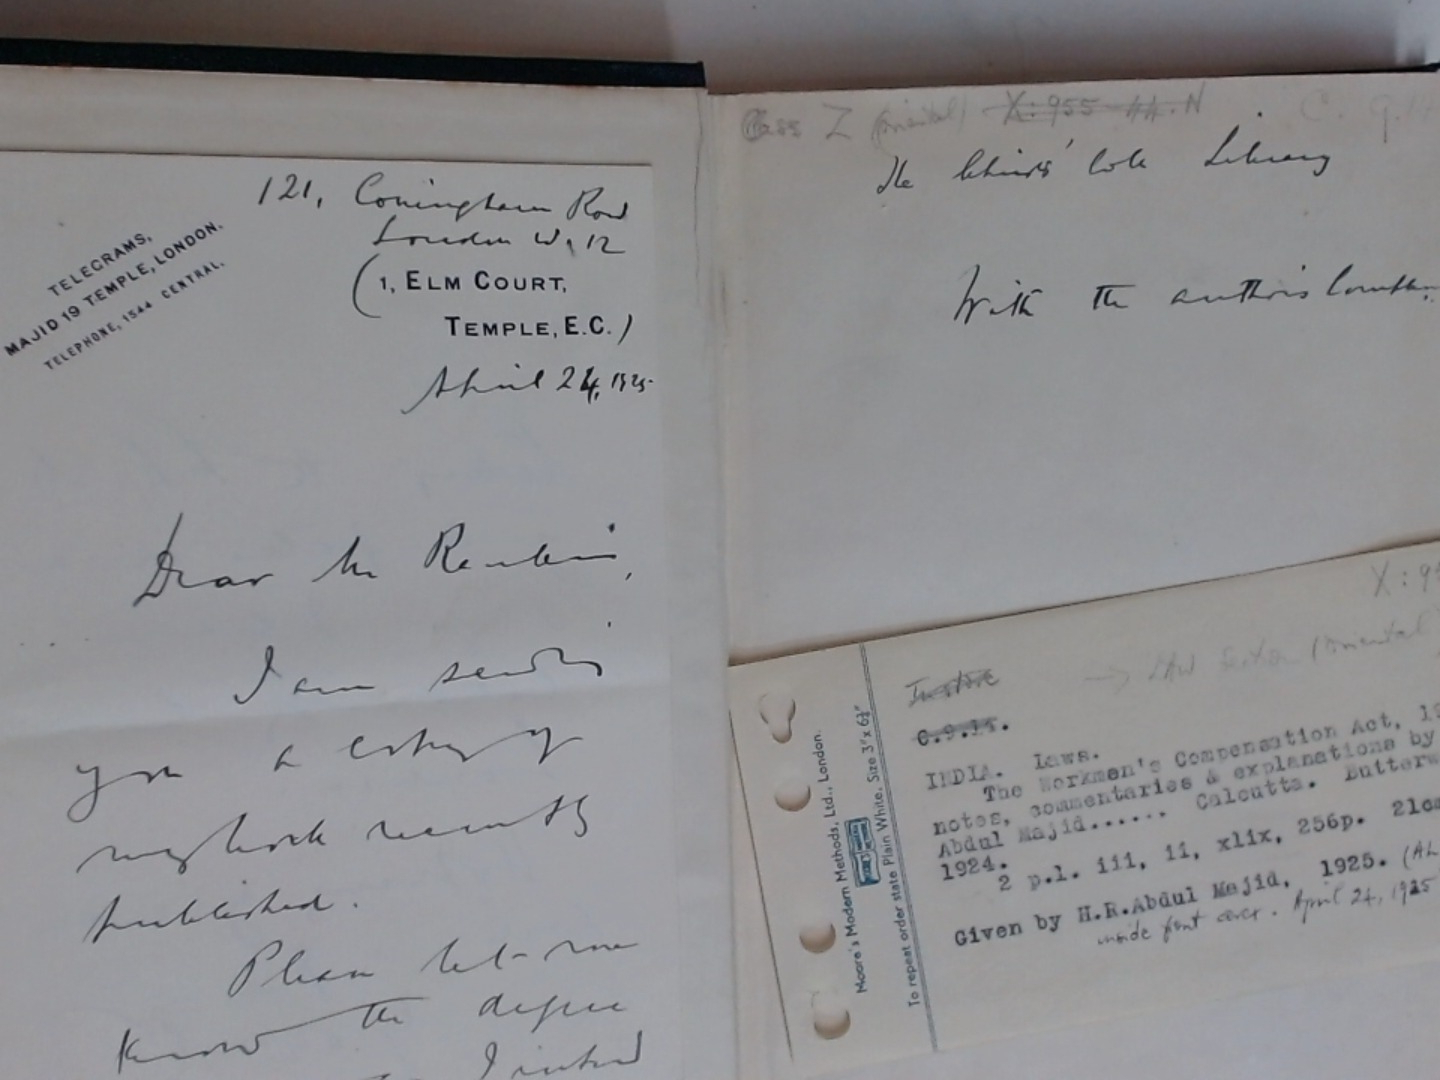 TELEGRAMS,
MAJID 19 TEMPLE, LONDON.
TELEPHONE, 1544 CENTRAL.
121, Coningham Road
London W. 12
(1, ELM COURT,
TEMPLE, E.C.)
April 24, 1925.
Dear Mr Rankin,
I am sending
you a copy of
my book recently
published.
Please let me
know the degree
Class Z (oriental) X:955 44.N
Library
With the author's
X:95
→ LAW Section (Oriental
In store
C.9.14.
INDIA. Laws.
The Workmen's Compensation Act, 19
notes, commentaries & explanations by
Abdul Majid...... Calcutta. Butterw
1924.
2 p.l. iii, ii, xlix, 256p. 21cm
Given by H.R.Abdul Majid, 1925. (AL
inside front cover. April 24, 1925
Moore's Modern Methods, Ltd., London.
To repeat order state Plain White, Size 3" x 6½"